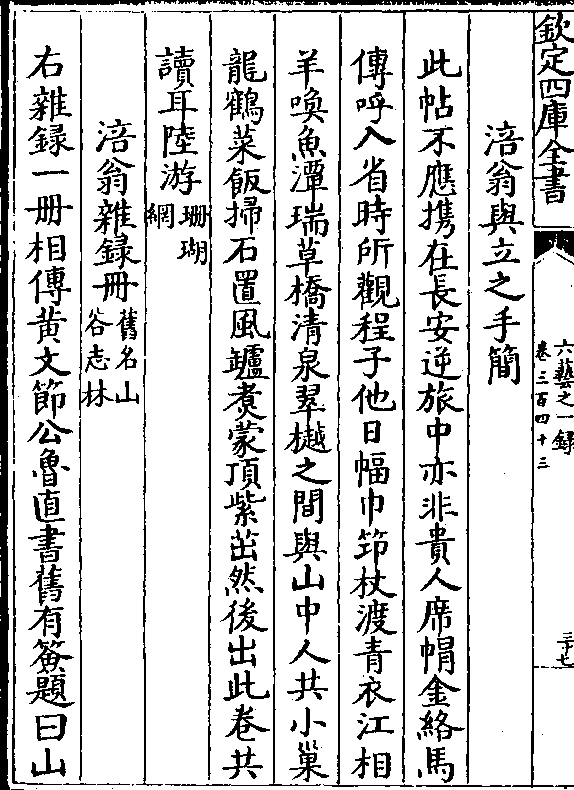 欽定四庫全書
六藝之一錄
卷三百四十三
三十七
涪翁與立之手簡
此帖不應携在長安逆旅中亦非貴人席帽金絡馬
傳呼入省時所觀程子他日幅巾筇杖渡青衣江相
羊喚魚潭瑞草橋清泉翠樾之間與山中人共小巢
龍鶴菜飯掃石置風罏煑蒙頂紫茁然後出此卷共
讀耳陸游珊瑚網
涪翁雜録冊舊名山谷志林
右雜録一册相傳黄文節公魯直書舊有簽題曰山